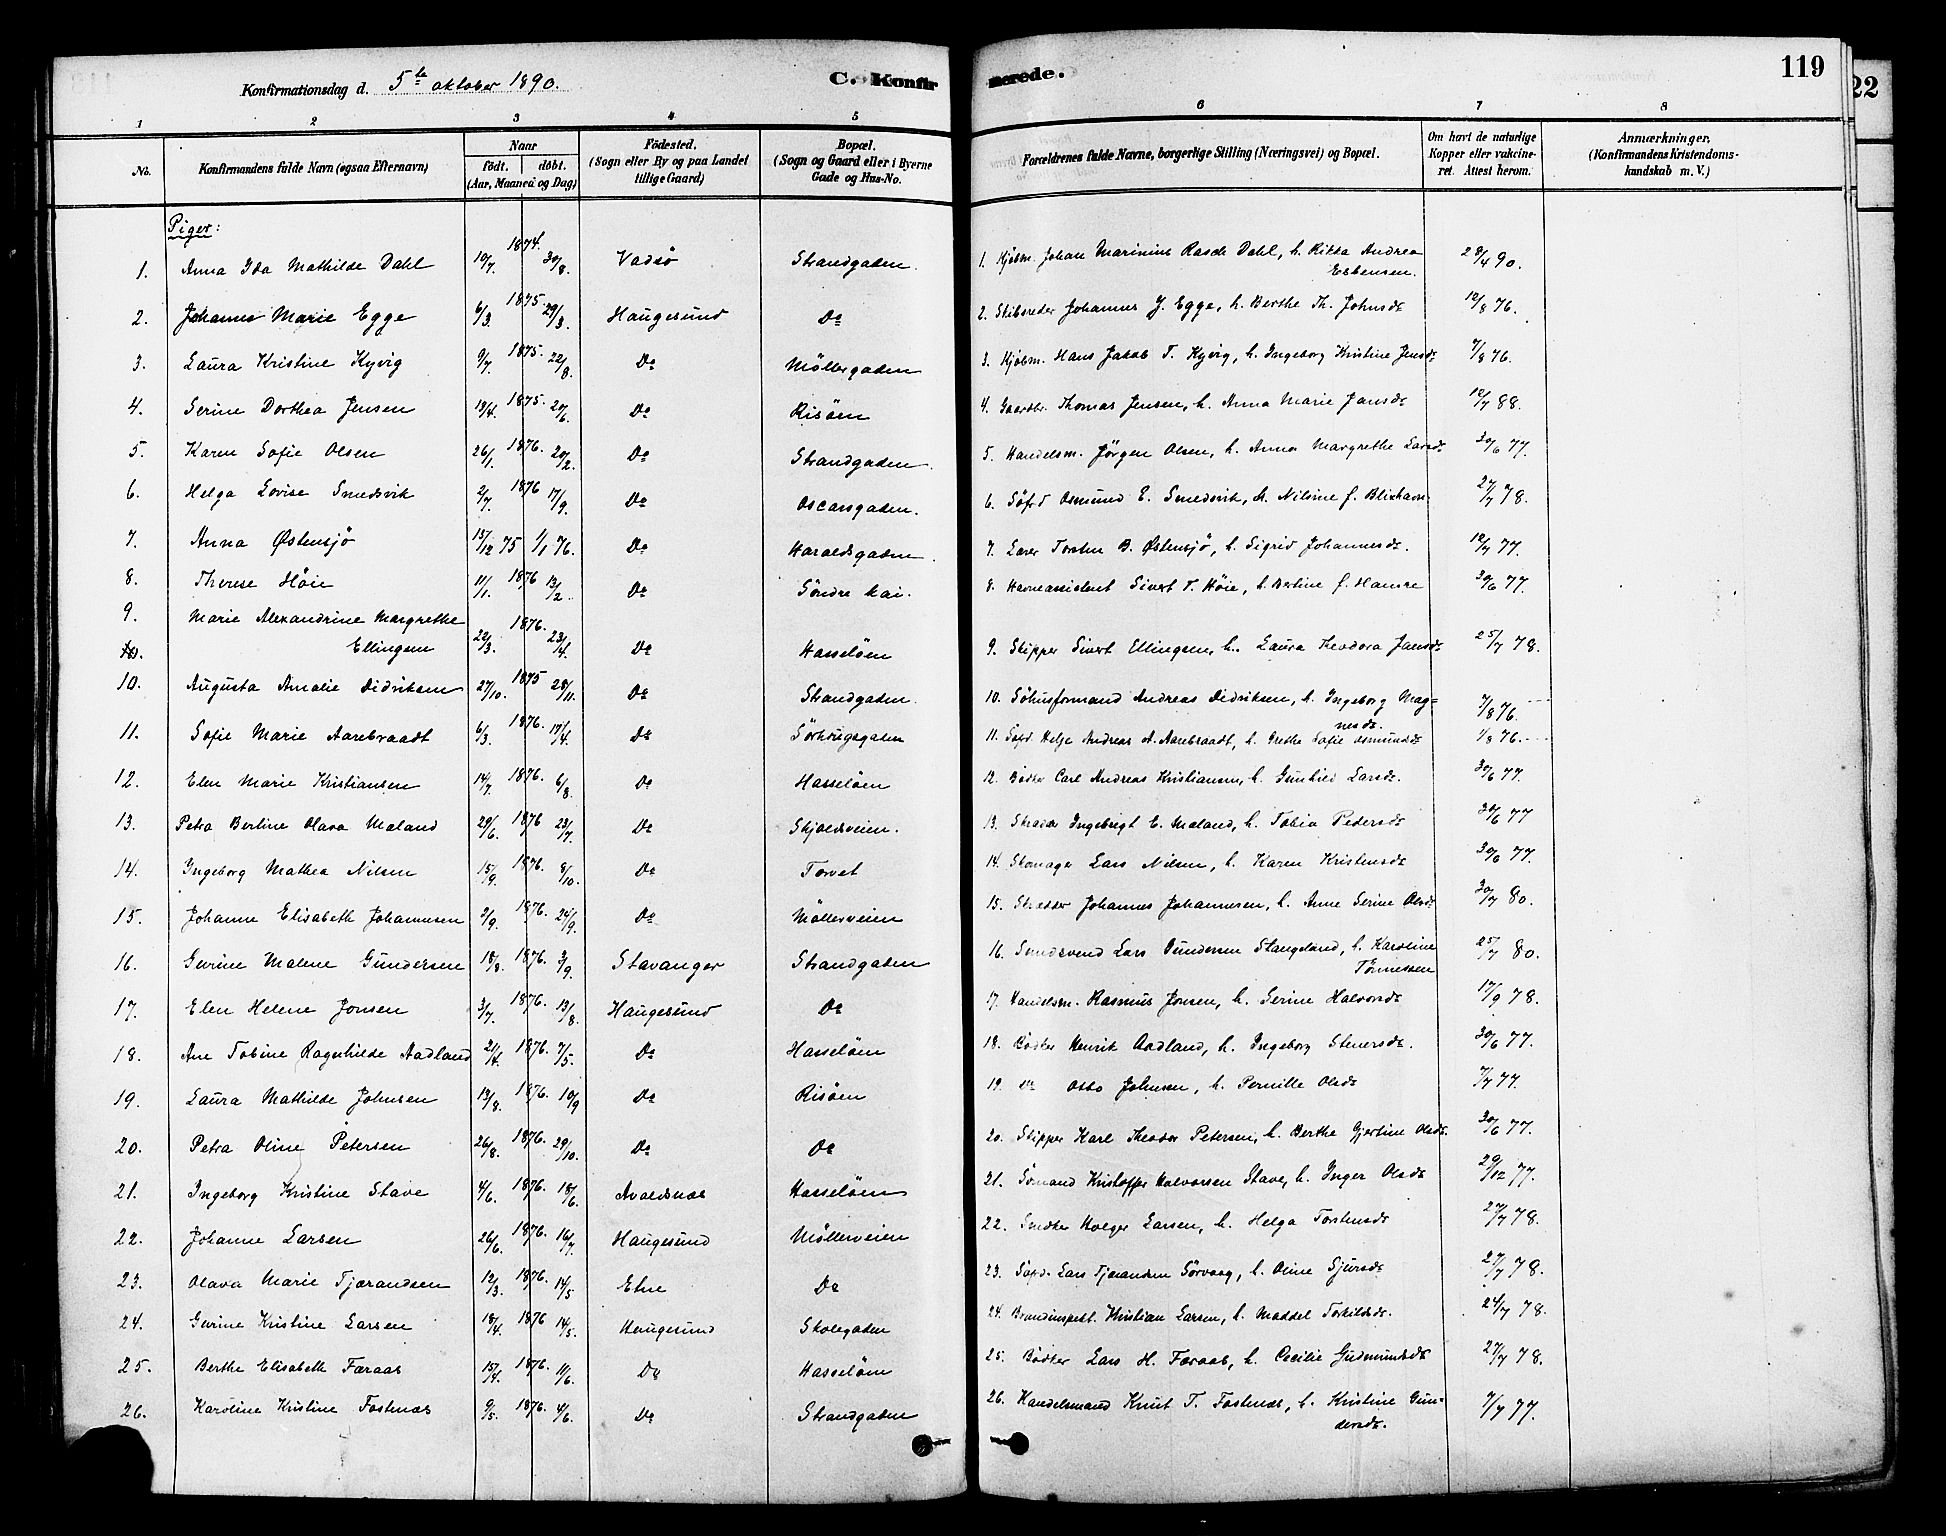 119
22
Konfirmationsdag d. 5te oktober 1890.
C. Konfirmerede.
1 2 3 4 5 6 7 8
No. Konfirmandens fulde Navn (ogsaa Efternavn) Naar født. døbt. (Aar, Maaned og Dag) Födested. (Sogn eller By og paa Landet tillige Gaard) Bopæl. (Sogn og Gaard eller i Byerne Gade og Hus-No. Forældrenes fulde Navne, borgerlige Stilling (Næringsvei) og Bopæl. Om havt de naturlige Kopper eller vakcineret. Attest herom. Anmærkninger, (Konfirmandens Kristendomskundskab m. V.)
Piger:
1. Anna Ida Mathilde Dahl 10/7. 1874. 30/8. Vadsö Strandgaden. 1. Kjöbm. Johan Marinius Rasch Dahl, h. Rikka Andrea Esbensen. 29/4 90.
2. Johanne Marie Egge 6/3. 1875. 29/3. Haugesund Do 2. Skibsreder Johannes J. Egge, h. Berthe Th. Johnsdr 12/8 76.
3. Laura Kristine Kyvig 9/7. 1875. 22/8. Do Möllergaden 3. Kjöbm. Hans Jakob T. Kyvig, h. Ingeborg Kristine Jensdr 7/8 76.
4. Serine Dorthea Jensen 19/4. 1875. 20/6. Do Risöen 4. Gaardbr. Thomas Jensen, h. Anna Marie Jansdr 12/7 88.
5. Karen Sofie Olsen 26/1. 1876. 20/2. Do Strandgaden. 5. Handelsm. Jörgen Olsen, h. Anna Margrethe Larsdr 30/6 77.
6. Helga Lovise Smedsvik 2/7. 1876 17/9. Do Oscarsgaden. 6. Söfd Osmund E. Smedsvik, h. Nilsine f. Blixhavn. 27/7 78.
7. Anna Østensjö 13/12 75 1/1 76. Do Haraldsgaden. 7. Lærer Torsten B. Østensjö, h. Sigrid Johannesdr. 12/7 77.
8. Therese Höie 11/1. 1876 13/2. Do Söndre kai. 8. Havneassistent Sivert T. Höie, h. Bertine f. Hamre 30/6 77.
9. Marie Alexandrine Margrethe
Ellingsen 22/3. 1876. 23/4. Do Hasselöen 9. Skipper Sivert Ellingsen, h. Laura Theodora Jansdr 25/7 78.
10. Augusta Amalie Didriksen 27/10. 1875 28/11. Do Strandgaden. 10. Söhusformand Andreas Didriksen, h. Ingeborg Magnesdr. 7/8 76.
11. Sofie Marie Aarebraadt 6/3. 1876. 17/4. Do Sörhaugsgaden 11. Söfd. Helje Andreas A. Aarebraadt, h. Grethe Sofie Osmundsdr 1/8 76.
12. Elen Marie Kristiansen 14/7. 1876. 6/8. Do Hasselöen 12. Bödker Carl Andreas Kristiansen, h. Gunhild Larsdr. 30/6 77.
13. Petra Bertine Olava Maland 29/6. 1876 23/7. Do Skjoldsveien. 13. Ingebrigt E. Maland, h. Tobia Pedersdr 30/6 77
14. Ingeborg Mathea Nilsen 15/9. 1876. 8/10. Do Torvet 14. Skomager Lars Nilsen, h. Karen Kristensdr 30/6 77.
15. Johanne Elisabeth Johannesen 2/9. 1876. 24/9. Do Möllerveien 15. Skrædder Johannes Johannesen, h. Anne Serine Olsdr 30/7 80.
16. Gurine Malene Gundersen 18/8. 1876. 3/9. Stavanger Strandgaden 16. Smedsvend Lars Gundersen Stangeland, h. Karoline Tönnessen 25/7 80.
17. Elen Helene Jonsen 3/7. 1876. 13/8. Haugesund Do 17. Handelsm. Rasmus Jonsen, h. Serine Halvorsdr 17/9 78.
18. Ane Tobine Ragnhilde Aadland 21/4. 1876. 7/5. Do Hasselöen 18. Bödker Henrik Aadland, h. Ingeborg Stenersdr. 30/6 77.
19. Laura Mathilde Johnsen 13/8. 1876. 10/9 Do Risöen 19. do Otto Johnsen, h. Pernille Olsdr 7/7 77.
20. Petra Oline Petersen 26/8. 1876. 29/10. Do Do 20. Skipper Karl Theodor Petersen, h. Berthe Gjertine Olsdr. 30/6 77.
21. Ingeborg Kristine Stave 4/6. 1876. 18/6. Avaldsnæs Hasselöen 21. Sömand Kristoffer Halvorsen Stave, h. Inger Olsdr 29/12 77.
22. Johanne Larsen 26/6. 1876. 16/7. Haugesund Möllerveien 22. Snedker Holger Larsen, h. Helga Torstensdr 27/7 78.
23. Olava Marie Tjærandsen 12/3. 1876. 14/5 Etne Do 23. Söfd. Lars Tjerandsen Sörvaag, h. Oline Sjursdr 27/7 78.
24. Gurine Kristine Larsen 18/4. 1876 14/5. Haugesund Skolegaden 24. Brandinspekt. Kristian Larsen, h. Maddel Torkildsdr. 24/7 78.
25. Berthe Elisabeth Færaas 15/4. 1876. 11/6. Do Hasselöen 25. Bödker Lars H. Færaas, h. Cecilie Gudmundsdr 27/7 78.
26. Karoline Kristine Fostenæs 9/5. 1876. 4/6. Do Strandgaden 26. Handelsmand Knut T. Fostenæs, h. Kristine Gundersdr. 7/7 77.